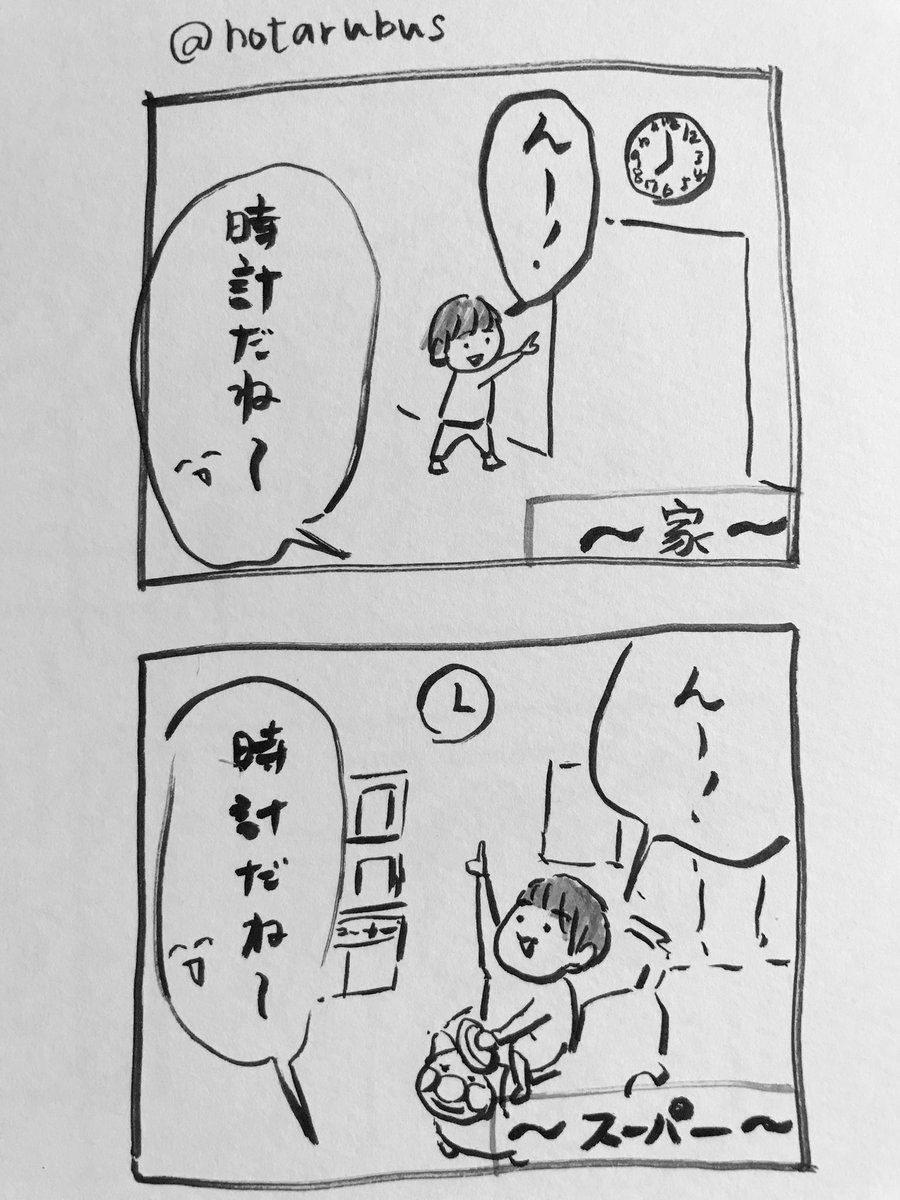 @hotarubus
んー!
時計だね〜
〜家〜
んー!
時計だね〜
コーナー
〜スーパー〜